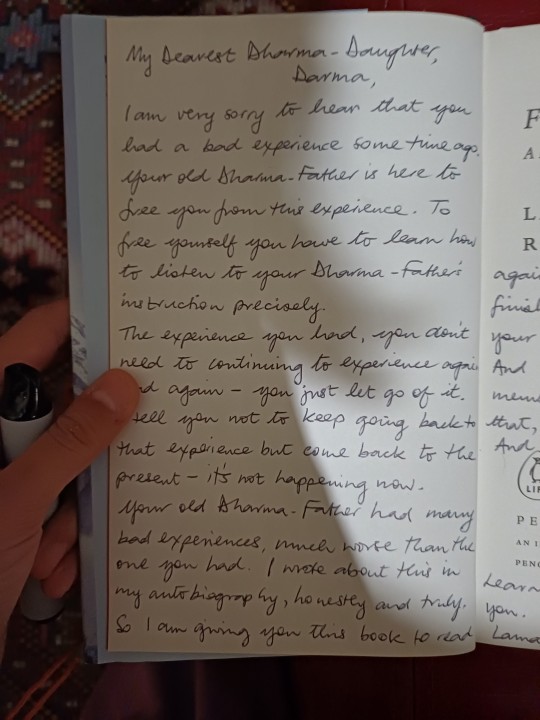 My Dearest Dharma-Daughter,
Darma,
I am very sorry to hear that you
had a bad experience some time ago.
Your old Dharma-Father is here to
free you from this experience. To
free yourself you have to learn how
to listen to your Dharma-Father's
instruction precisely.
The experience you had, you don't
need to continuing to experience again
and again – you just let go of it.
tell you not to keep going back to
that experience but come back to the
present – it's not happening now.
Your old Dharma-Father had many
bad experiences, much worse than the
one you had. I wrote about this in
my autobiography, honestly and truly.
So I am giving you this book to read
F
A
L
R
again
final
your
And
mem
that,
And
LI
PE
AN I
PENG
Learn
you.
Lama